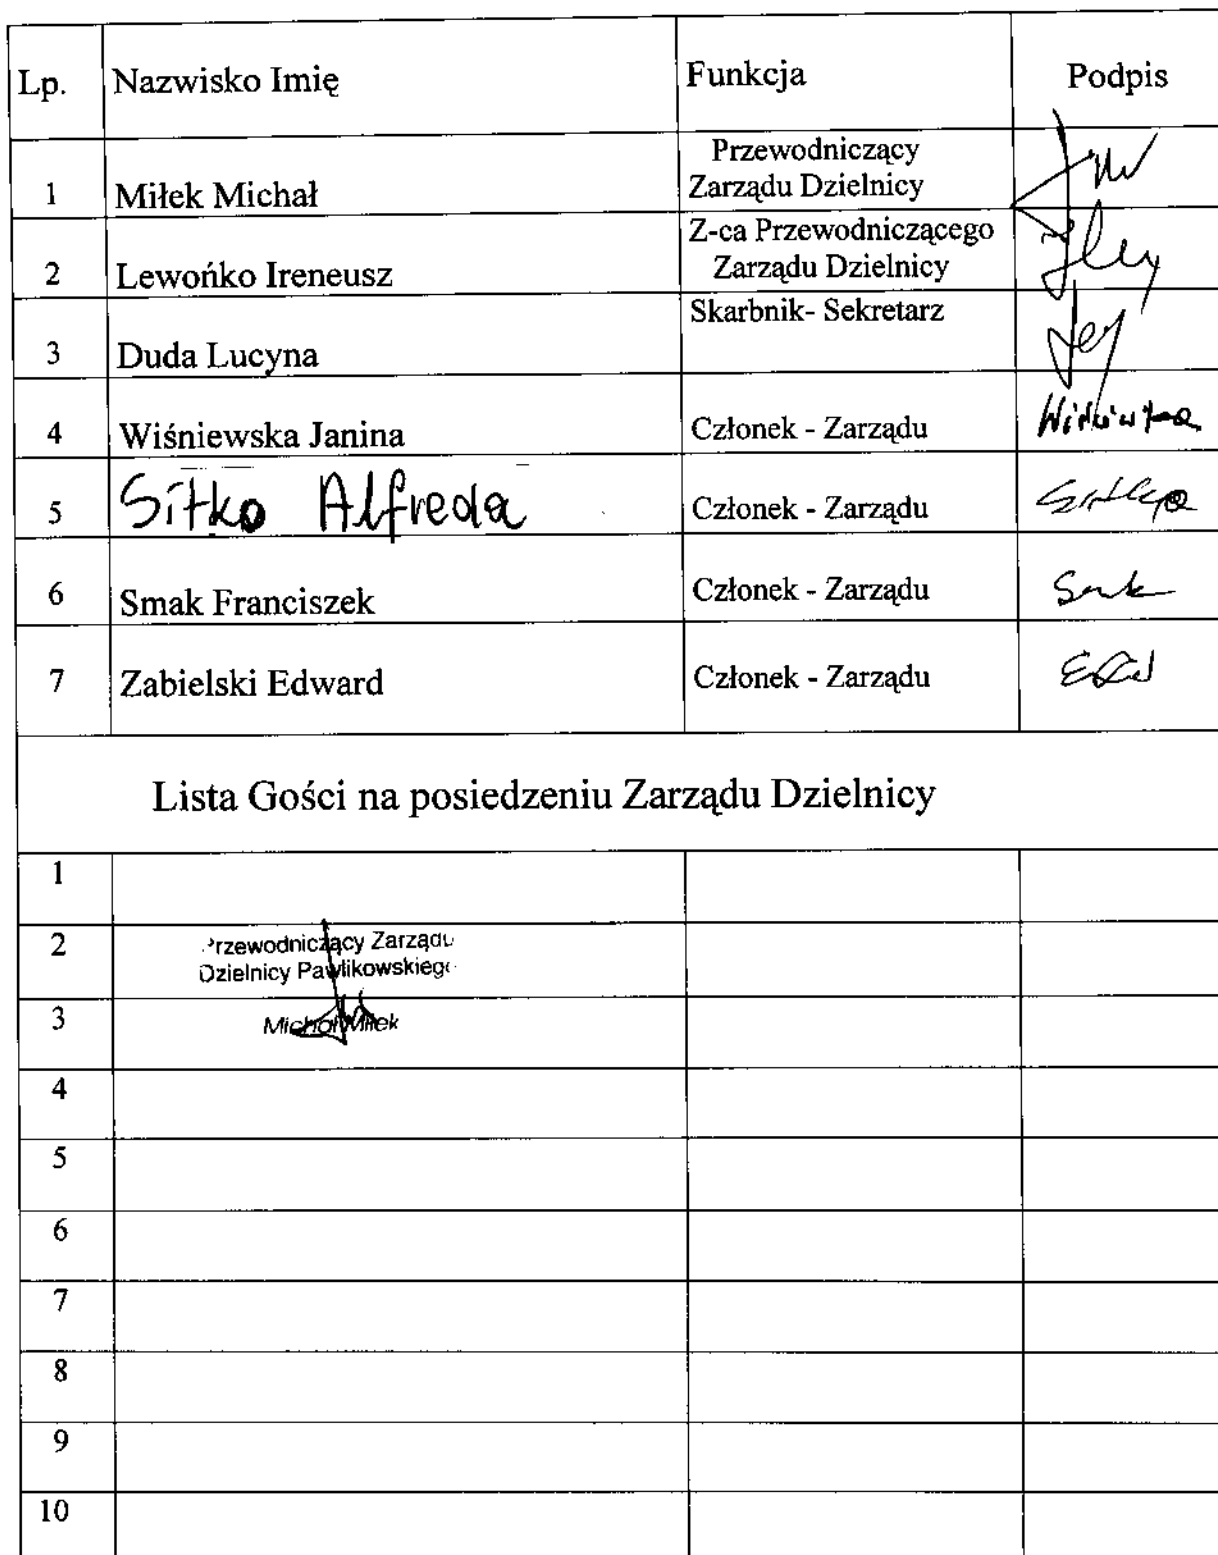 Lp. Nazwisko Imię Funkcja Podpis
1 Miłek Michał Przewodniczący
Zarządu Dzielnicy
2 Lewońko Ireneusz Z-ca Przewodniczącego
Zarządu Dzielnicy
3 Duda Lucyna Skarbnik- Sekretarz
4 Wiśniewska Janina Członek - Zarządu
5 Sitko Alfreda Członek - Zarządu
6 Smak Franciszek Członek - Zarządu
7 Zabielski Edward Członek - Zarządu
Lista Gości na posiedzeniu Zarządu Dzielnicy
1
2 Przewodniczący Zarządu
Dzielnicy Pawlikowskiego
3 Michał Miłek
4
5
6
7
8
9
10